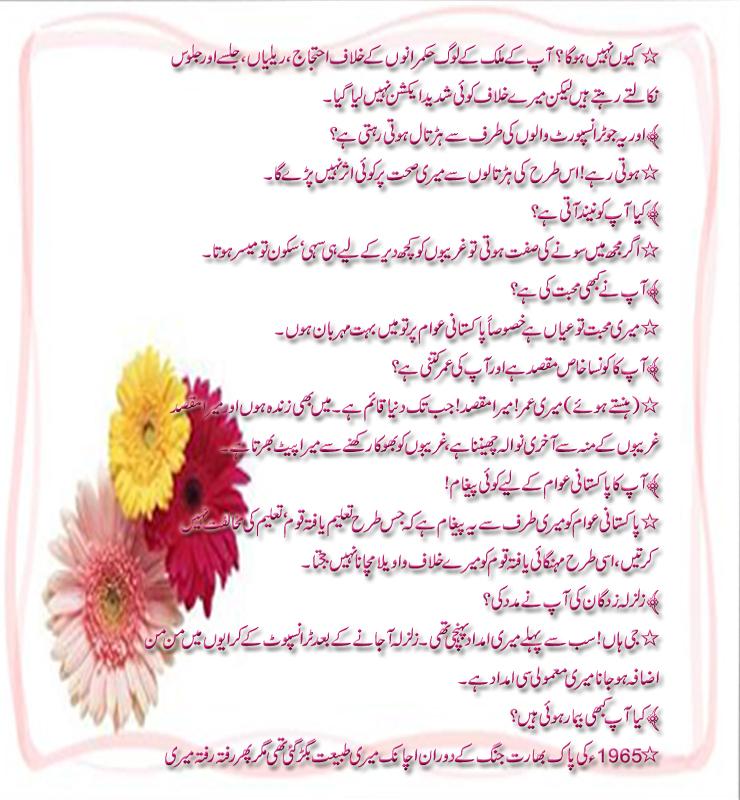 ☆ کیوں نہیں ہوگا؟ آپ کے ملک کے لوگ حکمرانوں کے خلاف احتجاج، ریلیاں، جلسے اور جلوس
نکالتے رہتے ہیں لیکن میرے خلاف کوئی شدید ایکشن نہیں لیا گیا۔
﴾ اور یہ جو ٹرانسپورٹ والوں کی طرف سے ہڑتال ہوتی رہتی ہے؟
☆ ہوتی رہے! اس طرح کی ہڑتالوں سے میری صحت پر کوئی اثر نہیں پڑے گا۔
﴾ کیا آپ کو نیند آتی ہے؟
☆ اگر مجھ میں سونے کی صفت ہوتی تو غریبوں کو کچھ دیر کے لیے ہی سہی‘ سکون تو میسر ہوتا۔
﴾ آپ نے کبھی محبت کی ہے؟
☆ میری محبت تو عیاں ہے خصوصاً پاکستانی عوام پر تو میں بہت مہربان ہوں۔
﴾ آپ کا کونسا خاص مقصد ہے اور آپ کی عمر کتنی ہے؟
☆ (ہنستے ہوئے) میری عمر! میرا مقصد! جب تک دنیا قائم ہے۔ میں بھی زندہ ہوں اور میرا مقصد
غریبوں کے منہ سے آخری نوالہ چھیننا ہے، غریبوں کو بھوکا رکھنے سے میرا پیٹ بھرتا ہے۔
﴾ آپ کا پاکستانی عوام کے لیے کوئی پیغام!
☆ پاکستانی عوام کو میری طرف سے یہ پیغام ہے کہ جس طرح ’تعلیم یافتہ قوم‘ تعلیم کی مخالفت نہیں
کرتیں، اسی طرح مہنگائی یافتہ قوم کو میرے خلاف واویلا مچانا نہیں جچتا۔
﴾ زلزلہ زدگان کی آپ نے مدد کی؟
☆ جی ہاں! سب سے پہلے میری امداد پہنچی تھی۔ زلزلہ آجانے کے بعد ٹرانسپوٹ کے کرایوں میں من من
اضافہ ہوجانا میری معمولی سی امداد ہے۔
﴾ کیا آپ کبھی بیمار ہوئی ہیں؟
☆ 1965ء کی پاک بھارت جنگ کے دوران اچانک میری طبیعت بگڑ گئی تھی مگر پھر رفتہ رفتہ میری